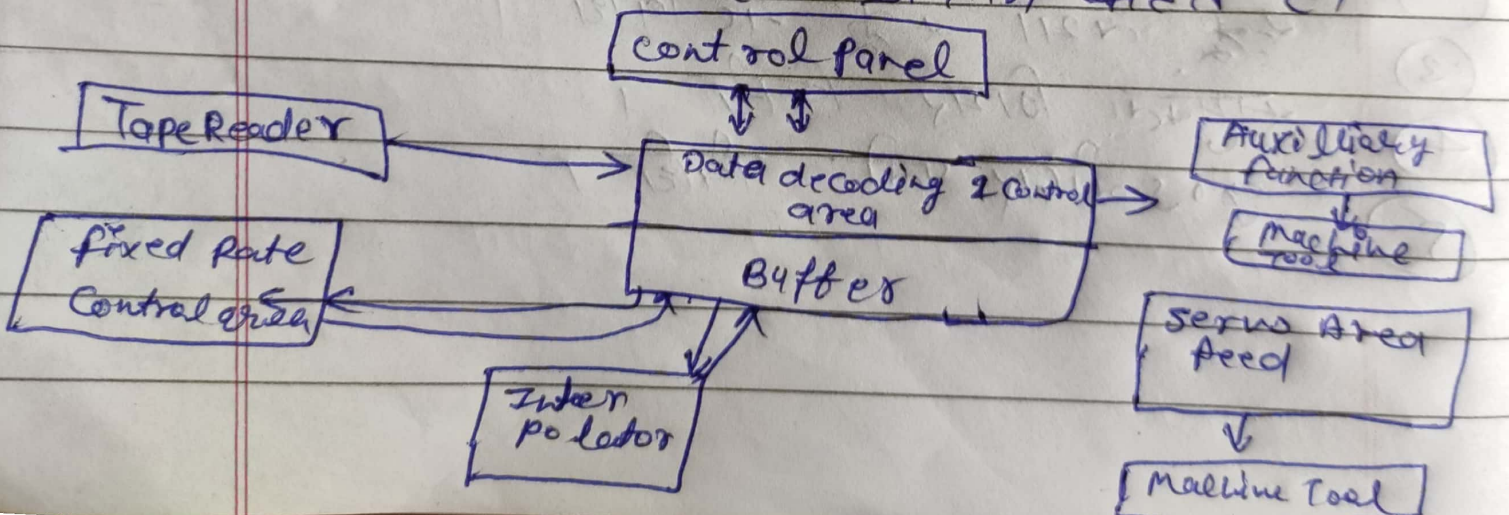 Control Panel
Tape Reader
Data decoding & Control
area
Buffer
Auxilliary
function
Machine
Tool
fixed Rate
Control area
Inter
polator
Servo Area
feed
Machine Tool